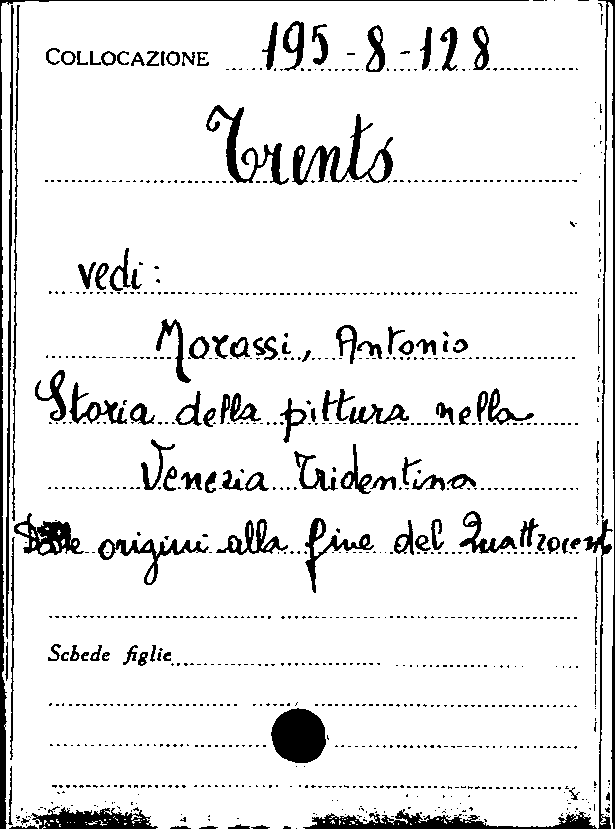 COLLOCAZIONE 195-8-128
Trento
vedi:
Morassi, Antonio
Storia della pittura nella
Venezia Tridentina
Dalle origini alla fine del Quattrocent
Schede figlie